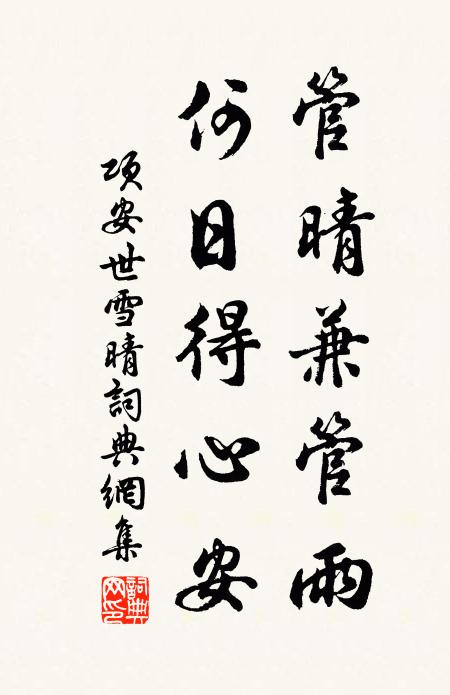 管晴兼管雨
何日得心安
項安世雪晴詞典網集
詞典
网印